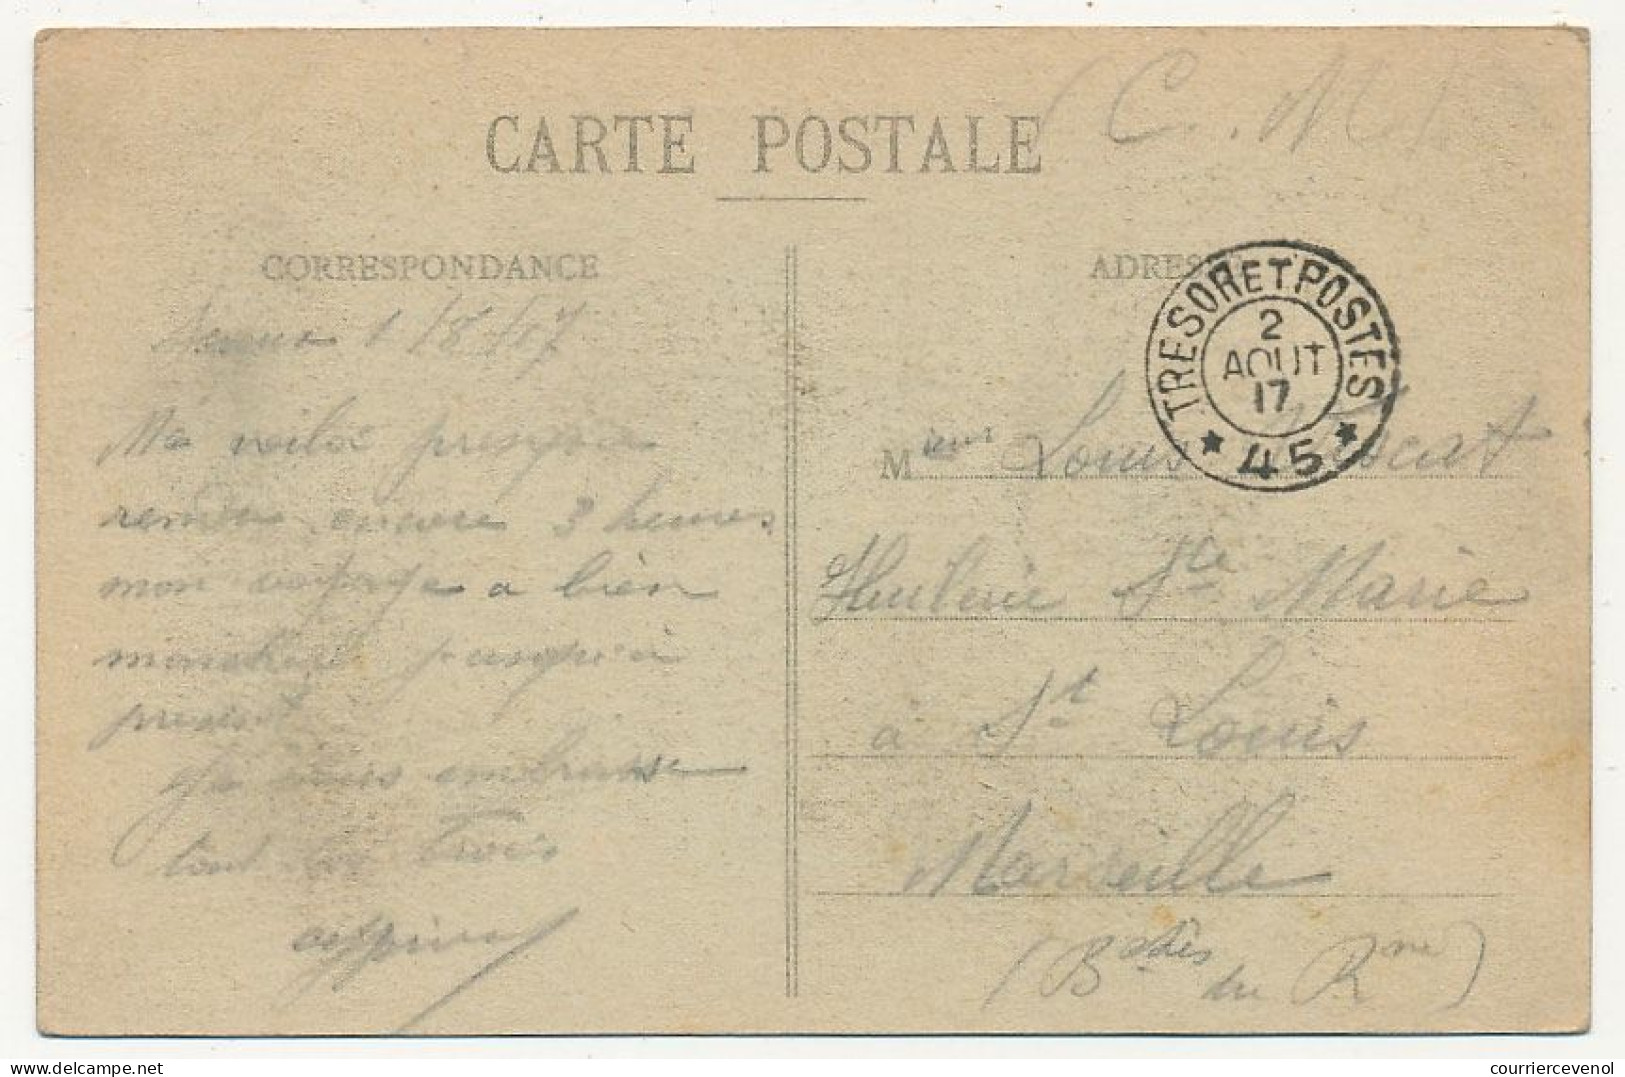 (C. M.)
CARTE POSTALE
CORRESPONDANCE
1/8/17
Me voila presque
rendu encore 3 heures
mon voyage a bien
marché jusqu'à
present
Je vous embrasse
tout les trois
ADRES
TRESOR ET POSTES
2
AOUT
17
* 45 *
Mieur Louis
Huilerie Ste Marie
à St Louis
Marseille
(Bches du Rne)
www.courriercevenol.com